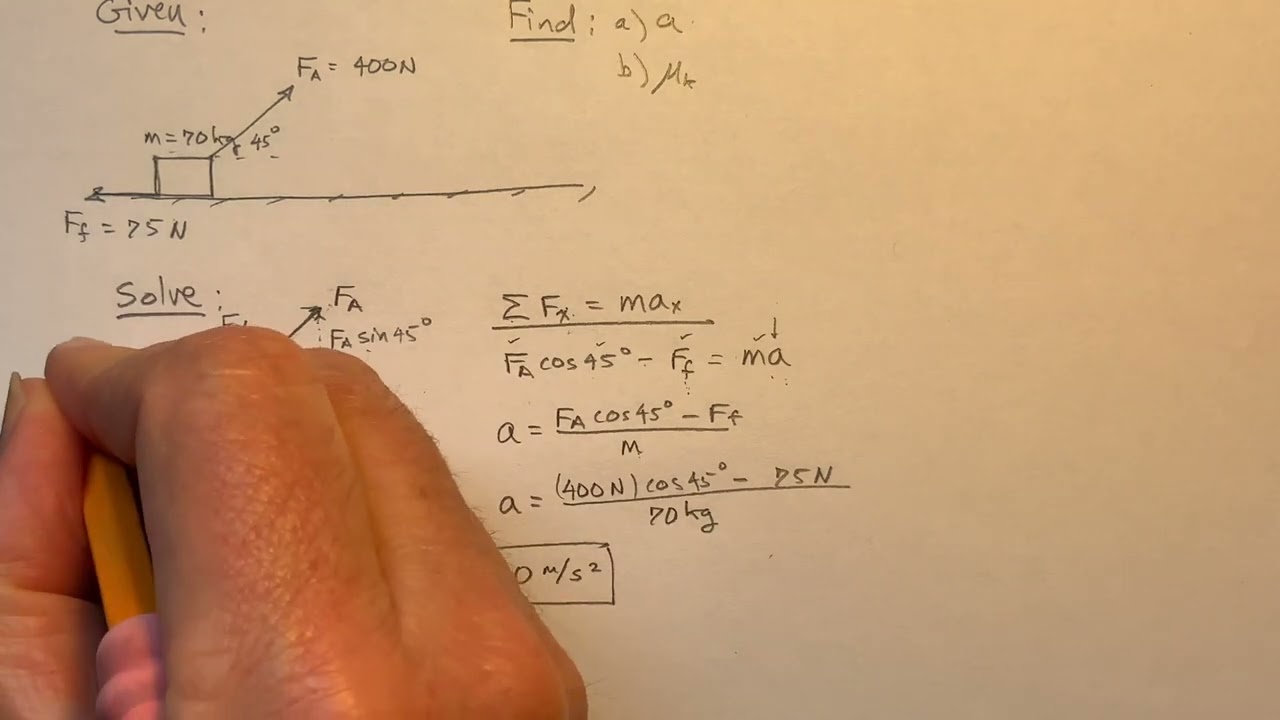 Given:
Find: a) a
b) μk
FA = 400N
m = 70kg 45°
Ff = 75 N
Solve:
FA
FA sin 45°
Σ Fx = max
FA cos 45° - Ff = ma
a = FA cos 45° - Ff
m
a = (400 N) cos 45° - 75 N
70 kg
0 m/s²